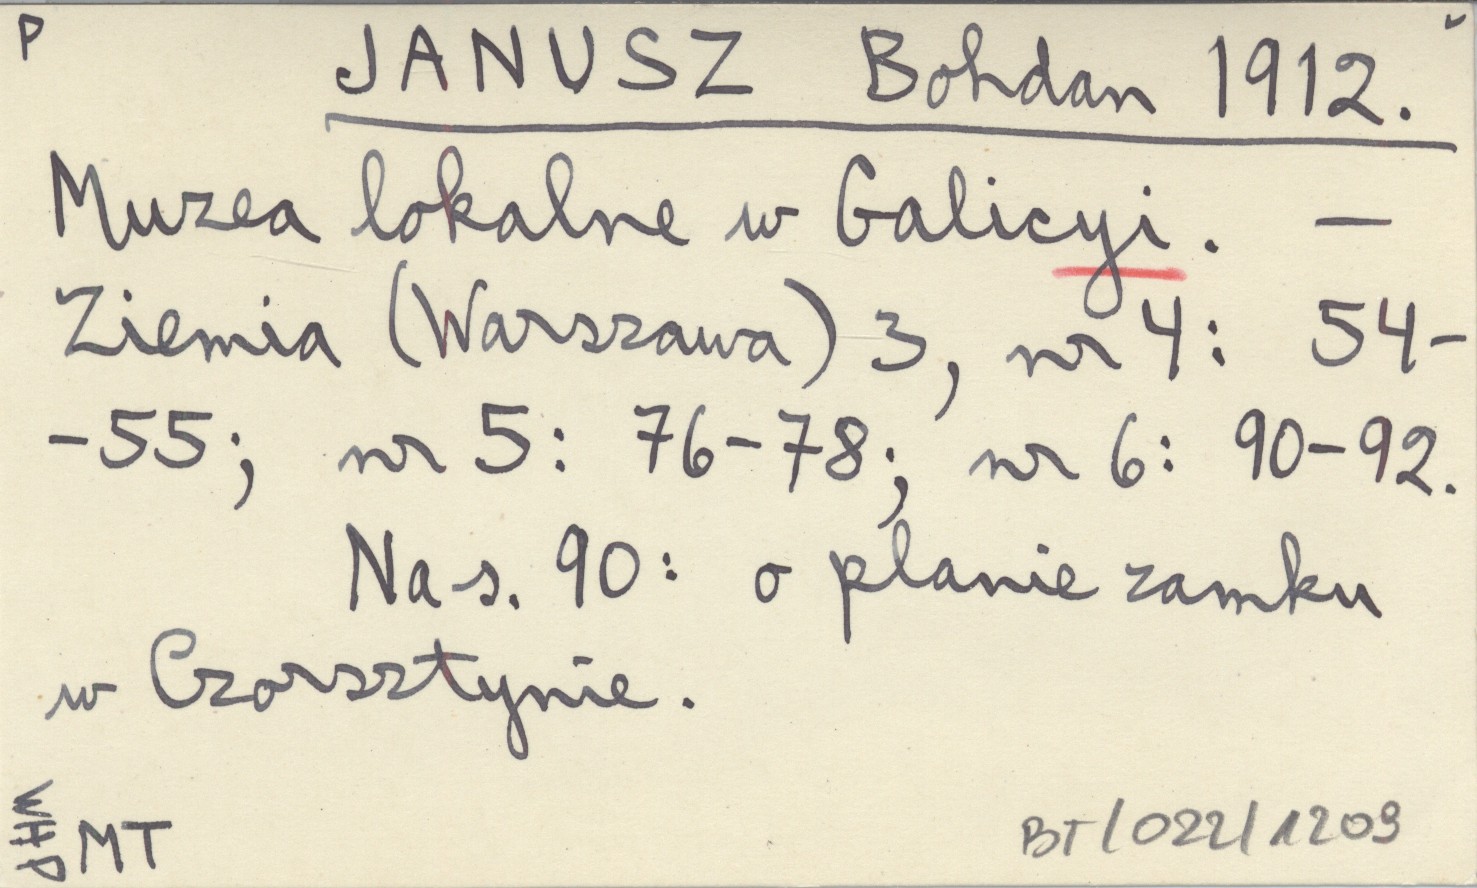 P
JANUSZ Bohdan 1912.
Muzea lokalne w Galicyi. —
Ziemia (Warszawa) 3, nr 4: 54-
-55; nr 5: 76-78; nr 6: 90-92.
Na s. 90: o planie zamku
w Czorsztynie.
MT
BT/022/1209